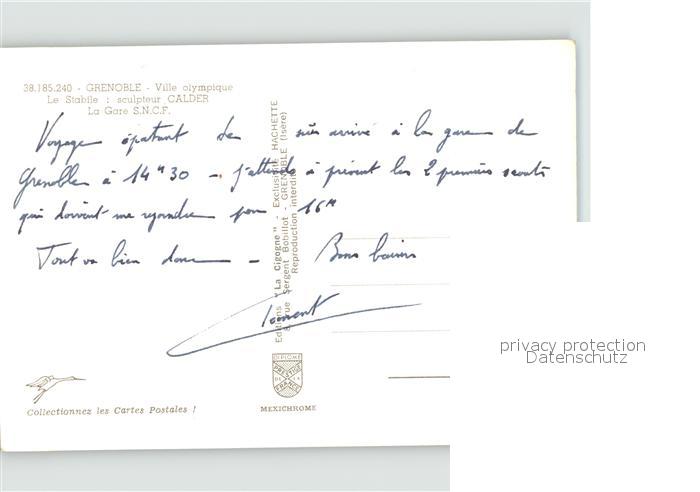 38.185.240 - GRENOBLE - Ville olympique
Le Stabile : sculpteur CALDER
La Gare S.N.C.F.
Voyage épatant de suis arrivé à la gare de
Grenoble à 14H30 - j'attends à présent les 2 premiers scouts
qui doivent me rejoindre pour 16H
Tout va bien donc - Bons baisers
Editions "La Cigogne" - Exclusivité HACHETTE
rue Sergent Bobillot - GRENOBLE (Isère)
Reproduction interdite
DIPLOME
PRESTIGE
DE LA
FRANCE
MEXICHROME
Collectionnez les Cartes Postales !
privacy protection
Datenschutz